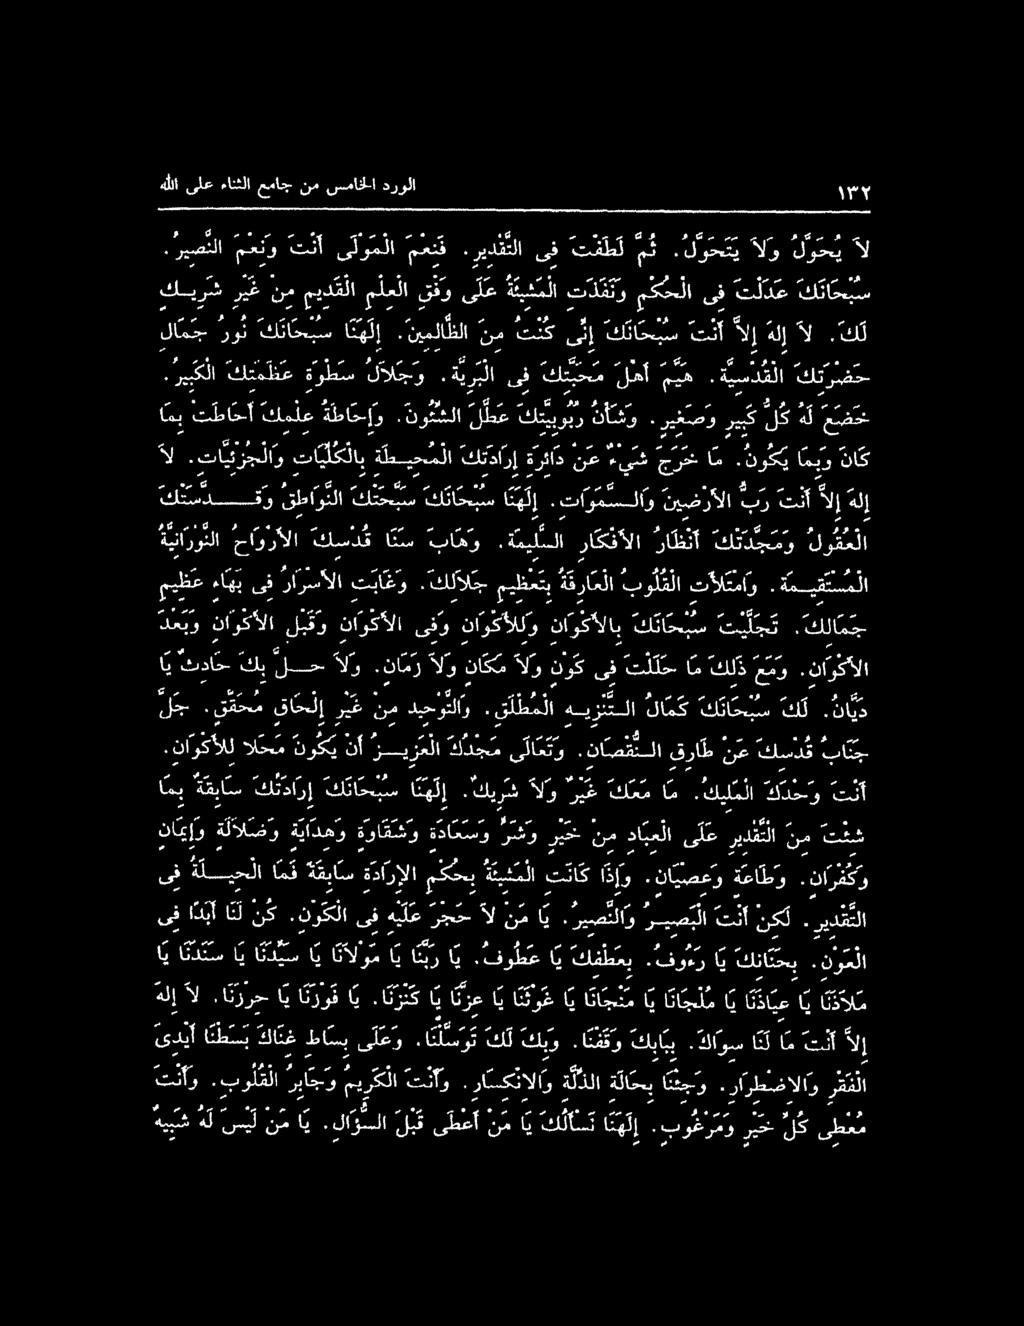 ١٣٢ الورد الخامس من جامع الثناء على الله
لاَ يُحَوَّلُ وَلاَ يَتَحَوَّلُ. ثُمَّ لَطَفْتَ فِى التَّقْدِيرِ. فَنِعْمَ الْمَوْلَى أَنْتَ وَنِعْمَ النَّصِيرُ.
سُبْحَانَكَ عَدَلْتَ فِى الْحُكْمِ وَنَفَذَتِ الْمَشِيئَةُ عَلَى وَفْقِ الْعِلْمِ الْقَدِيمِ مِنْ غَيْرِ شَرِيكٍ
لَكَ. لاَ إِلهَ إِلاَّ أَنْتَ سُبْحَانَكَ إِنِّى كُنْتُ مِنَ الظَّالِمِينَ. إِلَهَنَا سُبْحَانَكَ نُورُ جَمَالِ
حَضْرَتِكَ الْقُدْسِيَّةِ. هَيَّمَ أَهْلَ مَحَبَّتِكَ فِى الْبَرِيَّةِ. وَجَلاَلُ سَطْوَةِ عَظَمَتِكَ الْكَبِيرُ.
خَضَعَ لَهُ كُلُّ كَبِيرٍ وَصَغِيرٍ. وَشَأْنُ رُبُوبِيَّتِكَ عَطَّلَ الشُّئُونَ. وَإِحَاطَةُ عِلْمِكَ أَحَاطَتْ بِمَا
كَانَ وَبِمَا يَكُونُ. مَا خَرَجَ شَيْءٌ عَنْ دَائِرَةِ إِرَادَتِكَ الْمُحِيطَةِ بِالْكُلِّيَّاتِ وَالْجُزْئِيَّاتِ. لاَ
إِلهَ إِلاَّ أَنْتَ رَبُّ الأَرْضِينَ وَالسَّمَوَاتِ. إِلَهَنَا سُبْحَانَكَ سَبَّحَتْكَ النَّوَاطِقُ وَقَدَّسَتْكَ
الْعُقُولُ وَمَجَّدَتْكَ أَنْظَارُ الأَفْكَارِ السَّلِيمَةِ. وَهَابَ سَنَا قُدْسِكَ الأَرْوَاحُ النُّورَانِيَّةُ
الْمُسْتَقِيمَةِ. وَامْتَلأَتِ الْقُلُوبُ الْعَارِفَةُ بِتَعْظِيمِ جَلاَلِكَ. وَغَابَتِ الأَسْرَارُ فِى بَهَاءِ عَظِيمِ
جَمَالِكَ. تَجَلَّيْتَ سُبْحَانَكَ بِالأَكْوَانِ وَلِلأَكْوَانِ وَفِى الأَكْوَانِ وَقَبْلَ الأَكْوَانِ وَبَعْدَ
الأَكْوَانِ. وَمَعَ ذَلِكَ مَا حَلَلْتَ فِى كَوْنٍ وَلاَ مَكَانٍ وَلاَ زَمَانٍ. وَلاَ حَلَّ بِكَ حَادِثٌ يَا
دَيَّانُ. لَكَ سُبْحَانَكَ كَمَالُ التَّنْزِيهِ الْمُطْلَقِ. وَالتَّوْحِيدِ مِنْ غَيْرِ إِلْحَاقٍ مُحَقَّقٍ. جَلَّ
جَنَابُ قُدْسِكَ عَنْ طَارِقِ النُّقْصَانِ. وَتَعَالَى مَجْدُكَ الْعَزِيزُ أَنْ يَكُونَ مَحَلا لِلأَكْوَانِ.
أَنْتَ وَحْدَكَ الْمَلِيكُ. مَا مَعَكَ غَيْرٌ وَلاَ شَرِيكٌ. إِلَهَنَا سُبْحَانَكَ إِرَادَتُكَ سَابِقَةٌ بِمَا
شِئْتَ مِنَ التَّقْدِيرِ عَلَى الْعِبَادِ مِنْ خَيْرٍ وَشَرٍّ وَسَعَادَةٍ وَشَقَاوَةٍ وَهِدَايَةٍ وَضَلاَلَةٍ وَإِيمَانٍ
وَكُفْرَانٍ. وَطَاعَةٍ وَعِصْيَانٍ. وَإِذَا كَانَتِ الْمَشِيئَةُ بِحُكْمِ الإِرَادَةِ سَابِقَةً فَمَا الْحِيلَةُ فِى
التَّقْدِيرِ. لَكِنْ أَنْتَ الْبَصِيرُ وَالنَّصِيرُ. يَا مَنْ لاَ حَجْرَ عَلَيْهِ فِى الْكَوْنِ. كُنْ لَنَا أَبَدًا فِى
الْعَوْنِ. بِحَنَانِكَ يَا رَءُوفُ. بِعَطْفِكَ يَا عَطُوفُ. يَا رَبَّنَا يَا مَوْلاَنَا يَا سَيِّدَنَا يَا سَنَدَنَا يَا
مَلاَذَنَا يَا عِيَاذَنَا يَا مُلْجَانَا يَا مَنْجَانَا يَا غَوْثَنَا يَا عِزَّنَا يَا كَنْزَنَا. يَا فَوْزَنَا يَا حِرْزَنَا. لاَ إِلهَ
إِلاَّ أَنْتَ مَا لَنَا سِوَاكَ. بِبَابِكَ وَقَفْنَا. وَبِكَ لَكَ تَوَسَّلْنَا. وَعَلَى بِسَاطِ غِنَاكَ بَسَطْنَا أَيْدِىَ
الْفَقْرِ وَالاِضْطِرَارِ. وَجِئْنَا بِحَالَةِ الذِّلَّةِ وَالاِنْكِسَارِ. وَأَنْتَ الْكَرِيمُ وَجَابِرُ الْقُلُوبِ. وَأَنْتَ
مُعْطِى كُلِّ خَيْرٍ وَمَرْغُوبٍ. إِلَهَنَا نَسْأَلُكَ يَا مَنْ أَعْطَى قَبْلَ السُّؤَالِ. يَا مَنْ لَيْسَ لَهُ شَبِيهٌ